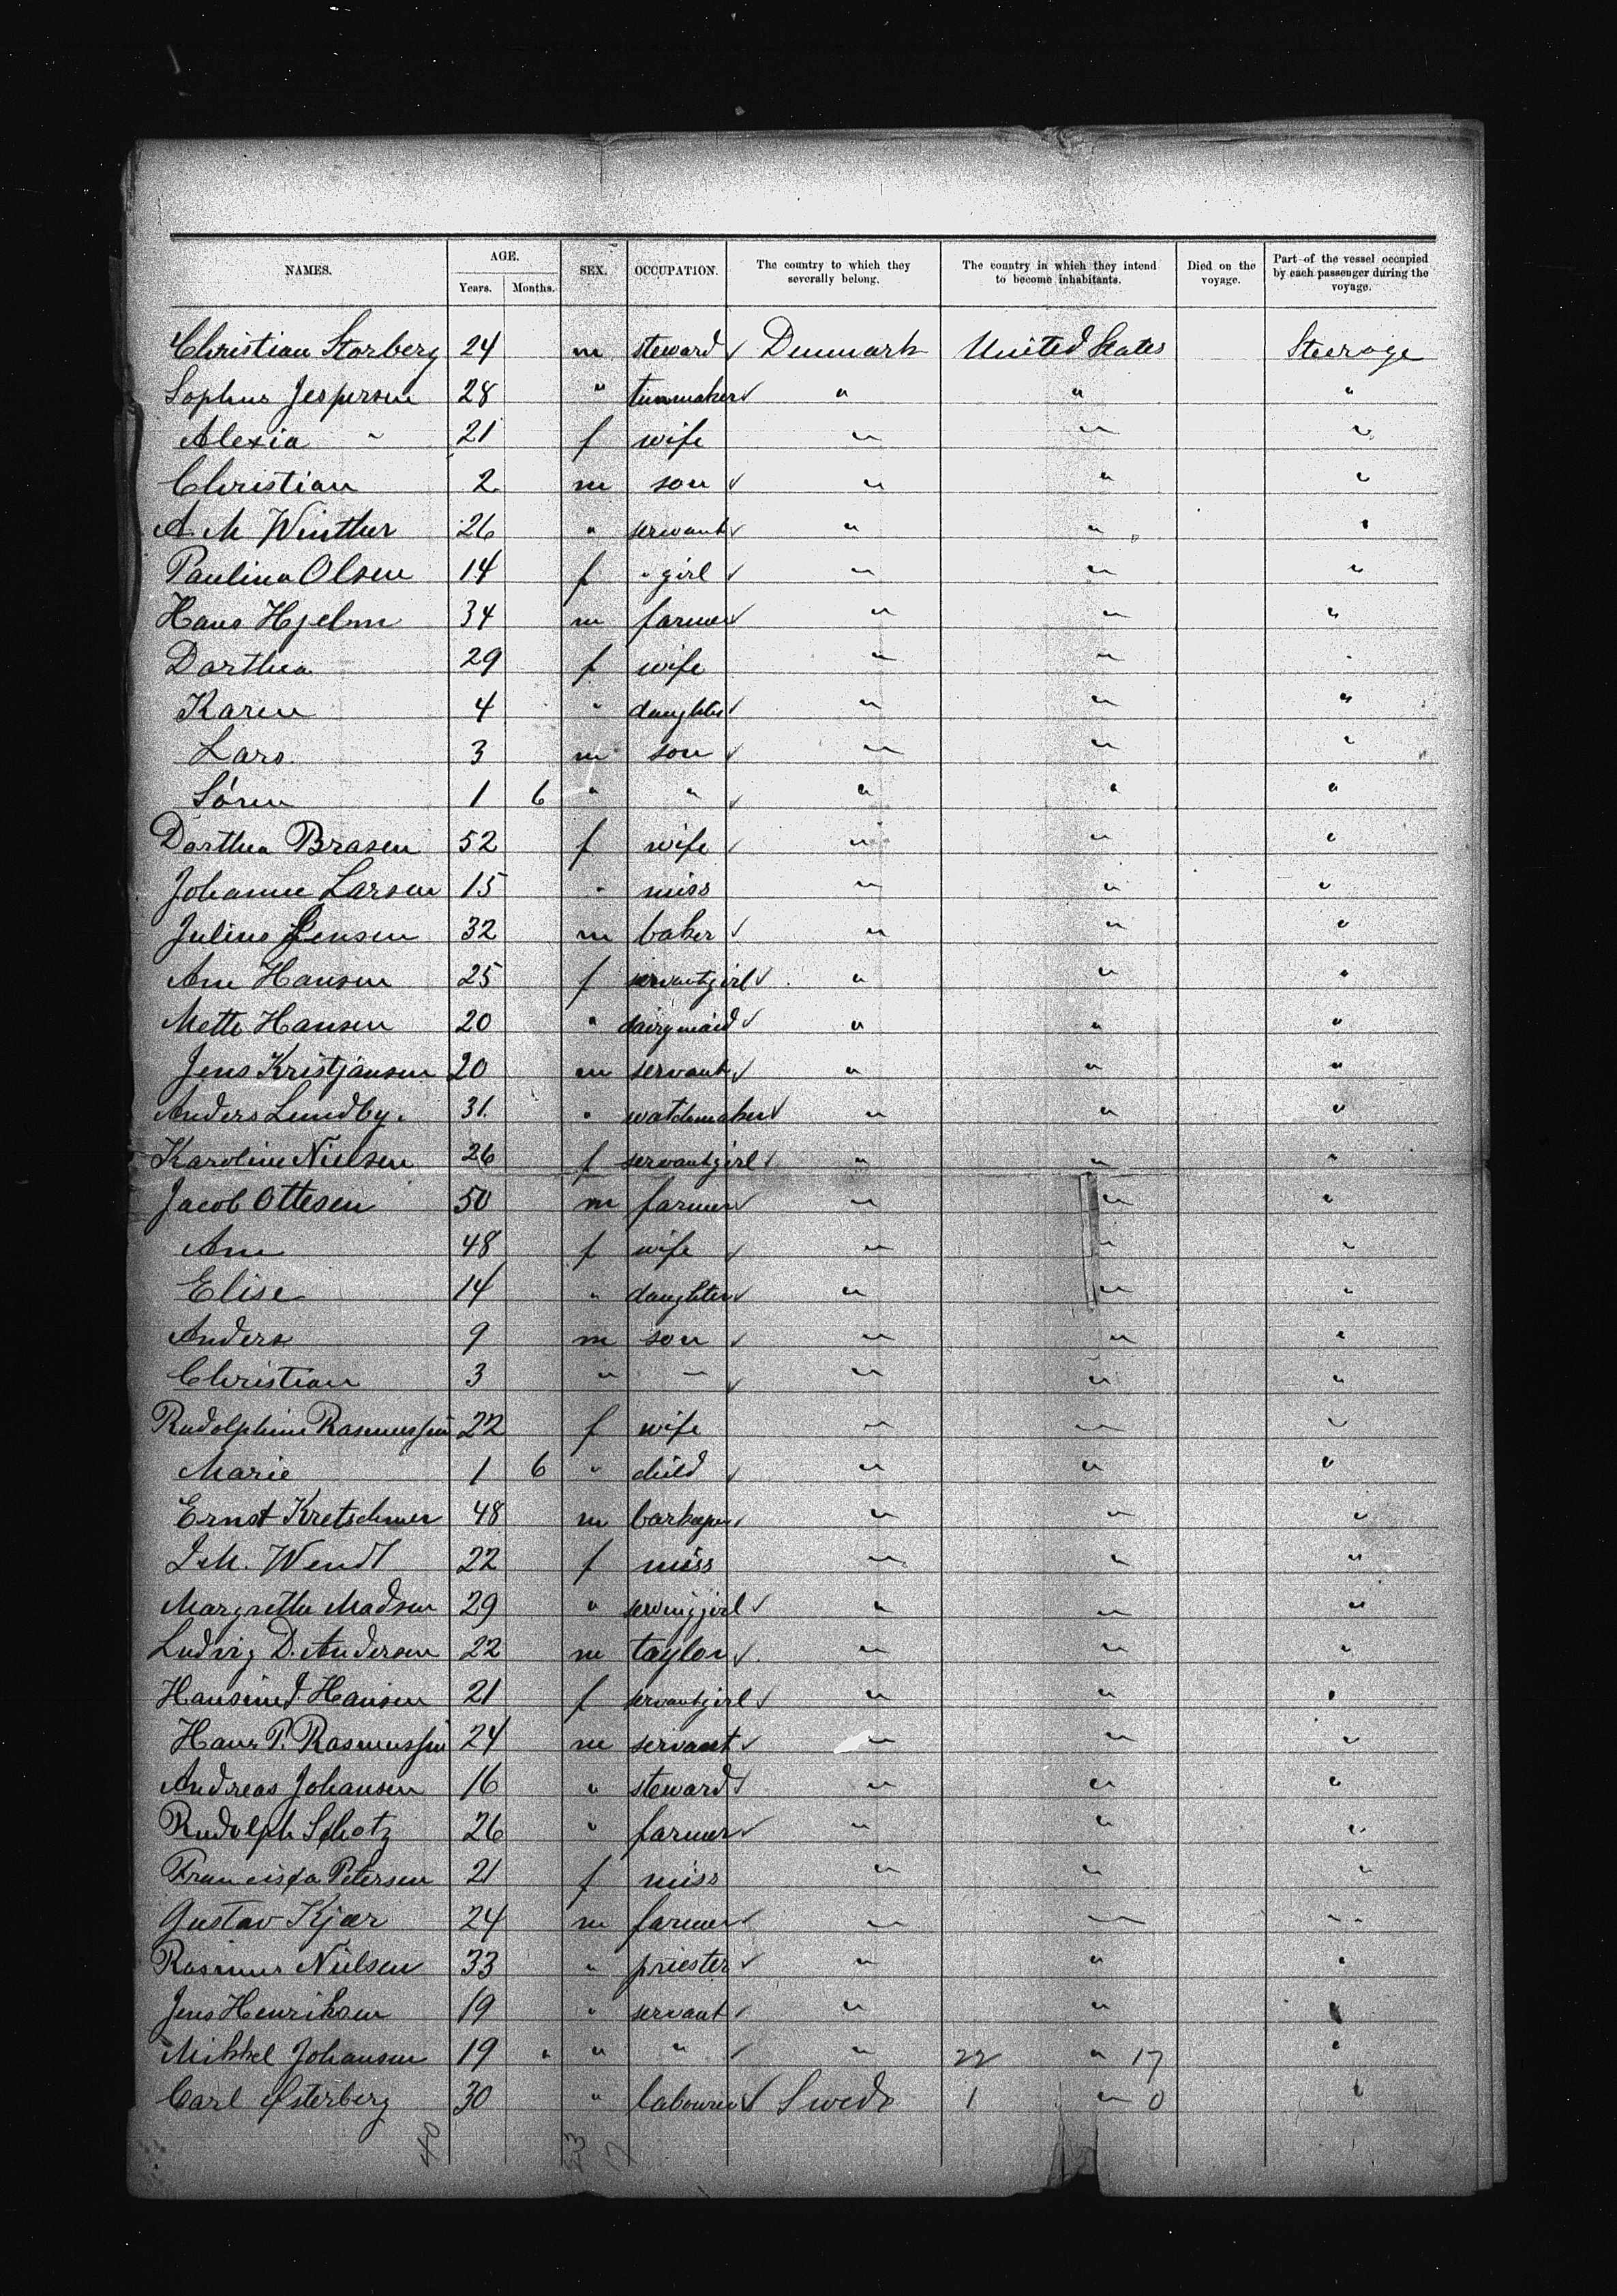 NAMES. AGE. SEX. OCCUPATION. The country to which they severally belong. The country in which they intend to become inhabitants. Died on the voyage. Part of the vessel occupied by each passenger during the voyage.
Years. Months.
Christian Storberg 24 m steward √ Denmark United States Steerage
Sophus Jespersen 28 " tinmaker √ " " "
Alexia " 21 f wife " " "
Christian 2 m son √ " " "
A. M Winther 26 " servant √ " " "
Paulina Olsen 14 f " girl √ " " "
Hans Hjelm 34 m farmer √ " " "
Dorthea 29 f wife " " "
Karen 4 " daughter √ " " "
Lars 3 m son √ " " "
Sören 1 6 " " √ " " "
Dorthea Brasen 52 f wife √ " " "
Johanne Larsen 15 " miss " " "
Julius Jensen 32 m baker √ " " "
Ane Hansen 25 f servantgirl √ " " "
Mette Hansen 20 " dairymaid √ " " "
Jens Kristjansen 20 m servant √ " " "
Anders Lundby. 31 " watchmaker √ " " "
Karoline Nielsen 26 f servantgirl √ " " "
Jacob Ottesen 50 m farmer √ " " "
Ane 48 f wife √ " " "
Elise 14 " daughter √ " " "
Anders 9 m son √ " " "
Christian 3 " " √ " " "
Rudolphine Rasmussen 22 f wife " " "
Marie 1 6 " child √ " " "
Ernst Kretschmer 48 m barkeper √ " " "
J. M. Wendt 22 f miss " " "
Margrethe Madsen 29 " servinggirl √ " " "
Ludvig D. Andersen 22 m taylor √ " " "
Hansine J. Hansen 21 f servantgirl √ " " "
Hans P. Rasmussen 24 m servant √ " " "
Andreas Johansen 16 " steward √ " " "
Rudolph Schotz 26 " farmer √ " " "
Francisca Petersen 21 f miss " " "
Gustav Kjær 24 m farmer √ " " "
Rasmus Nielsen 33 " priester √ " " "
Jens Henriksen 19 " servant √ " " "
Mikkel Johansen 19 " " " √ " 22 " 17 "
Carl Østerberg 30 " labourer √ Swede 1 " 0 "
40 23 17